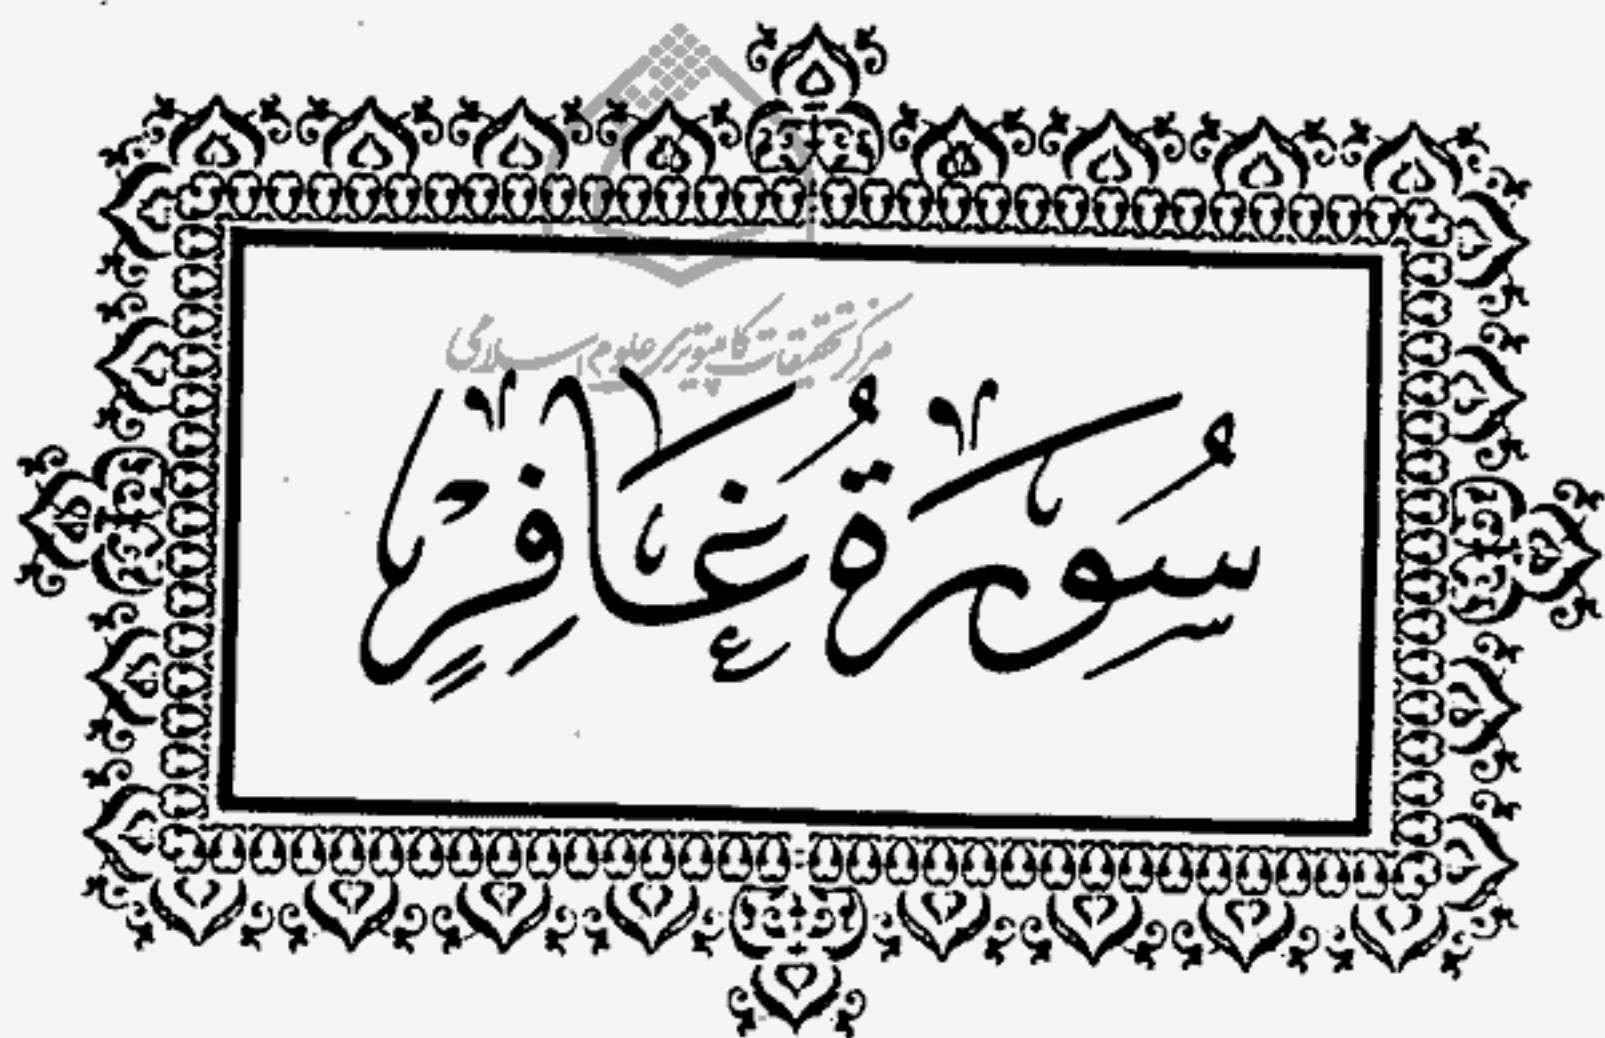 مرکز تحقیقات کامپیوتری علوم اسلامی
سُورَةُ غَافِرٍ